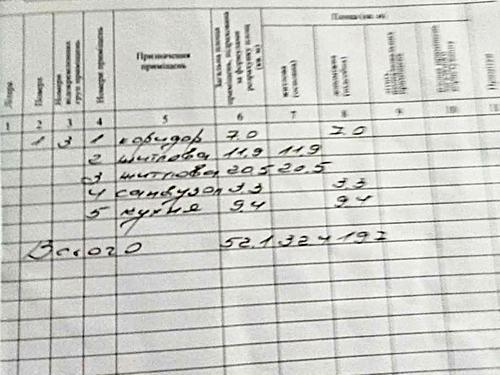 Площа (кв. м)
Літера
Поверх
Номери відокремлених груп приміщень
Номери приміщень
Призначення приміщень
Загальна площа приміщень, підрахована за формулами розрахунку площ (кв. м)
житлова (основна)
допоміжна (підсобна)
1 2 3 4 5 6 7 8 9 10 11
1 3 1 коридор 7.0 7.0
2 житлова 11,9 11,9
3 житлова 20,5 20,5
4 санвузол 3.3 3.3
5 кухня 9.4 9.4
Всього 52.1 32.4 19.7